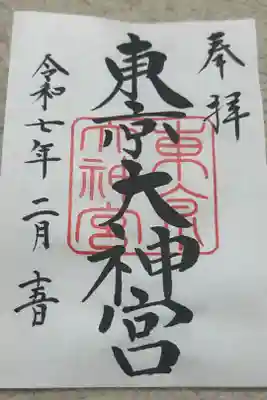 奉拝
東京大神宮
東京
大神宮
令和七年 二月 日